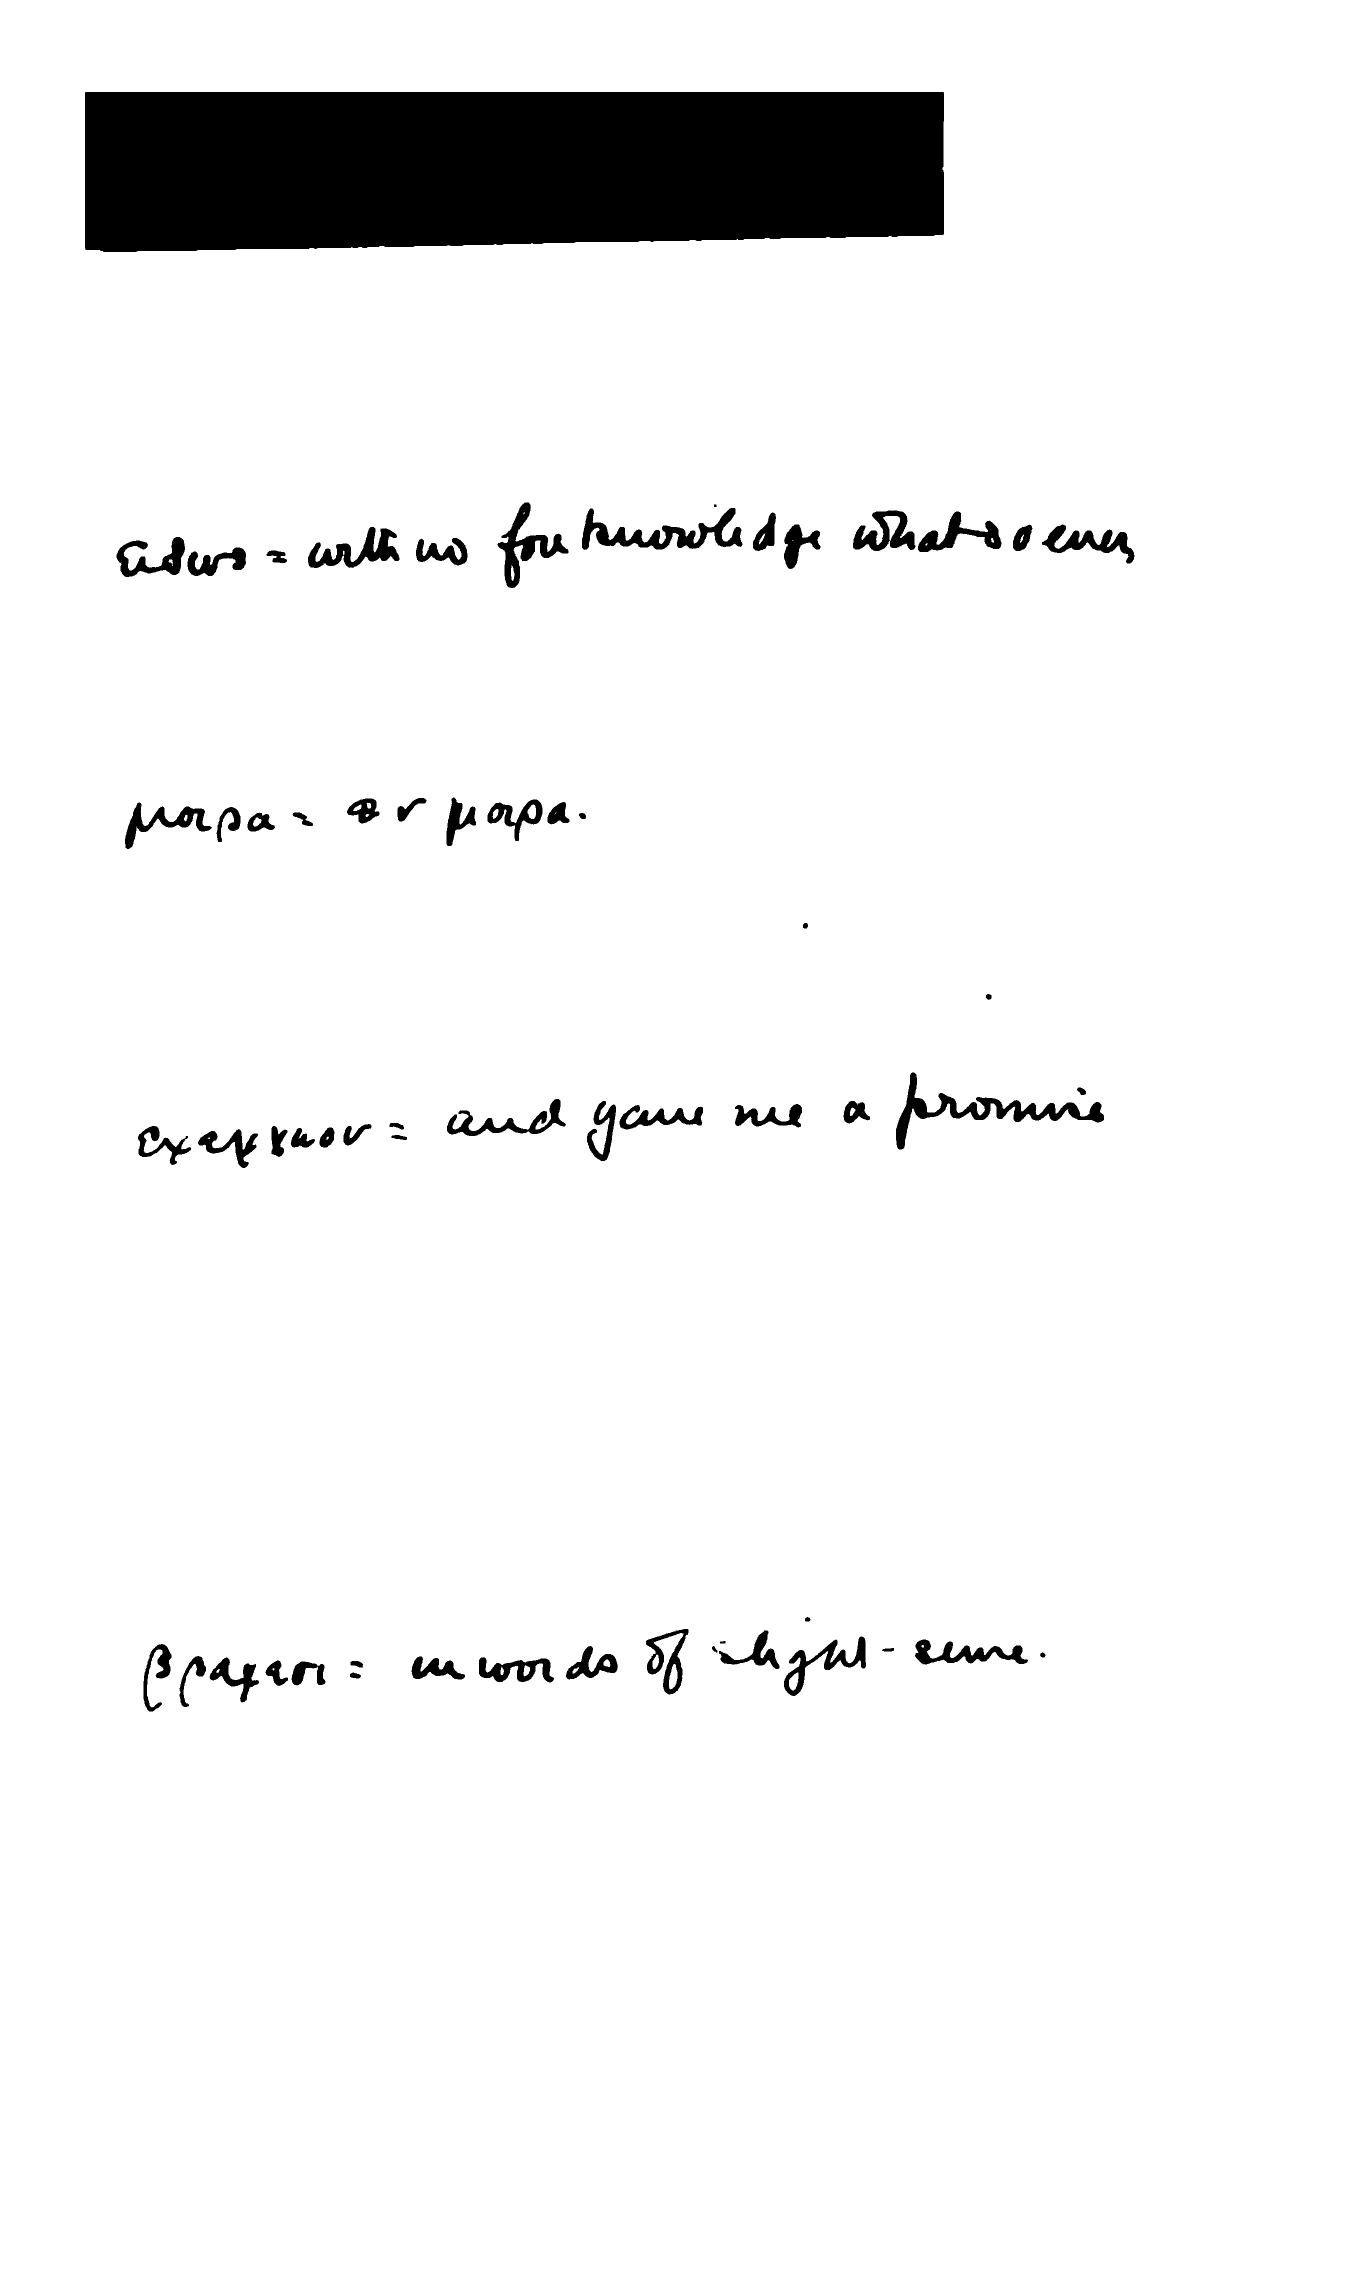 ειδως = with no foreknowledge whatsoever,
μοιρα = ἐν μοιρα.
= and gave me a promise
βραχεσι = in words of slight-sense.